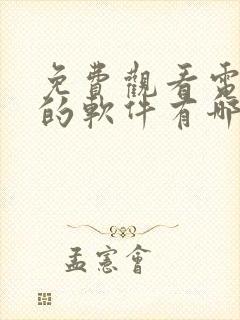 免費觀看電
的軟件有哪
孟憲會